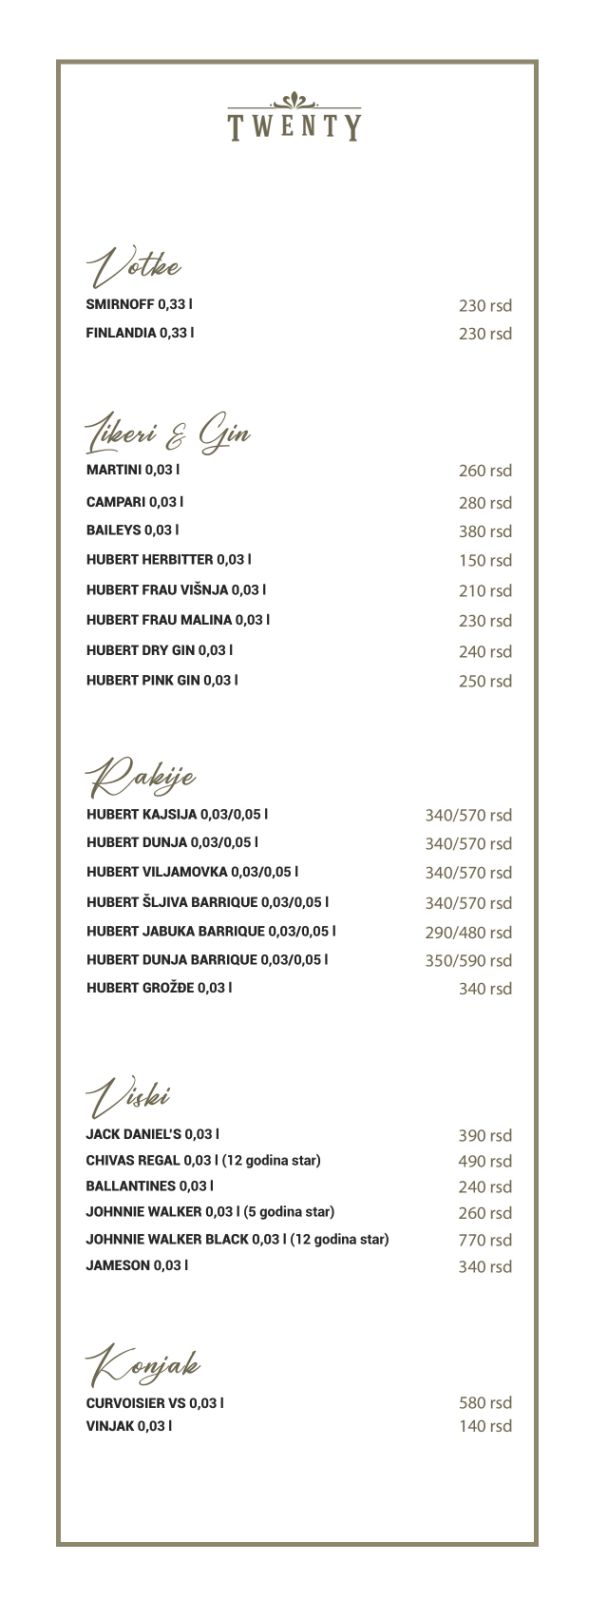 TWENTY
Votke
SMIRNOFF 0,33 l 230 rsd
FINLANDIA 0,33 l 230 rsd
Likeri & Gin
MARTINI 0,03 l 260 rsd
CAMPARI 0,03 l 280 rsd
BAILEYS 0,03 l 380 rsd
HUBERT HERBITTER 0,03 l 150 rsd
HUBERT FRAU VIŠNJA 0,03 l 210 rsd
HUBERT FRAU MALINA 0,03 l 230 rsd
HUBERT DRY GIN 0,03 l 240 rsd
HUBERT PINK GIN 0,03 l 250 rsd
Rakije
HUBERT KAJSIJA 0,03/0,05 l 340/570 rsd
HUBERT DUNJA 0,03/0,05 l 340/570 rsd
HUBERT VILJAMOVKA 0,03/0,05 l 340/570 rsd
HUBERT ŠLJIVA BARRIQUE 0,03/0,05 l 340/570 rsd
HUBERT JABUKA BARRIQUE 0,03/0,05 l 290/480 rsd
HUBERT DUNJA BARRIQUE 0,03/0,05 l 350/590 rsd
HUBERT GROŽĐE 0,03 l 340 rsd
Viski
JACK DANIEL'S 0,03 l 390 rsd
CHIVAS REGAL 0,03 l (12 godina star) 490 rsd
BALLANTINES 0,03 l 240 rsd
JOHNNIE WALKER 0,03 l (5 godina star) 260 rsd
JOHNNIE WALKER BLACK 0,03 l (12 godina star) 770 rsd
JAMESON 0,03 l 340 rsd
Konjak
CURVOISIER VS 0,03 l 580 rsd
VINJAK 0,03 l 140 rsd